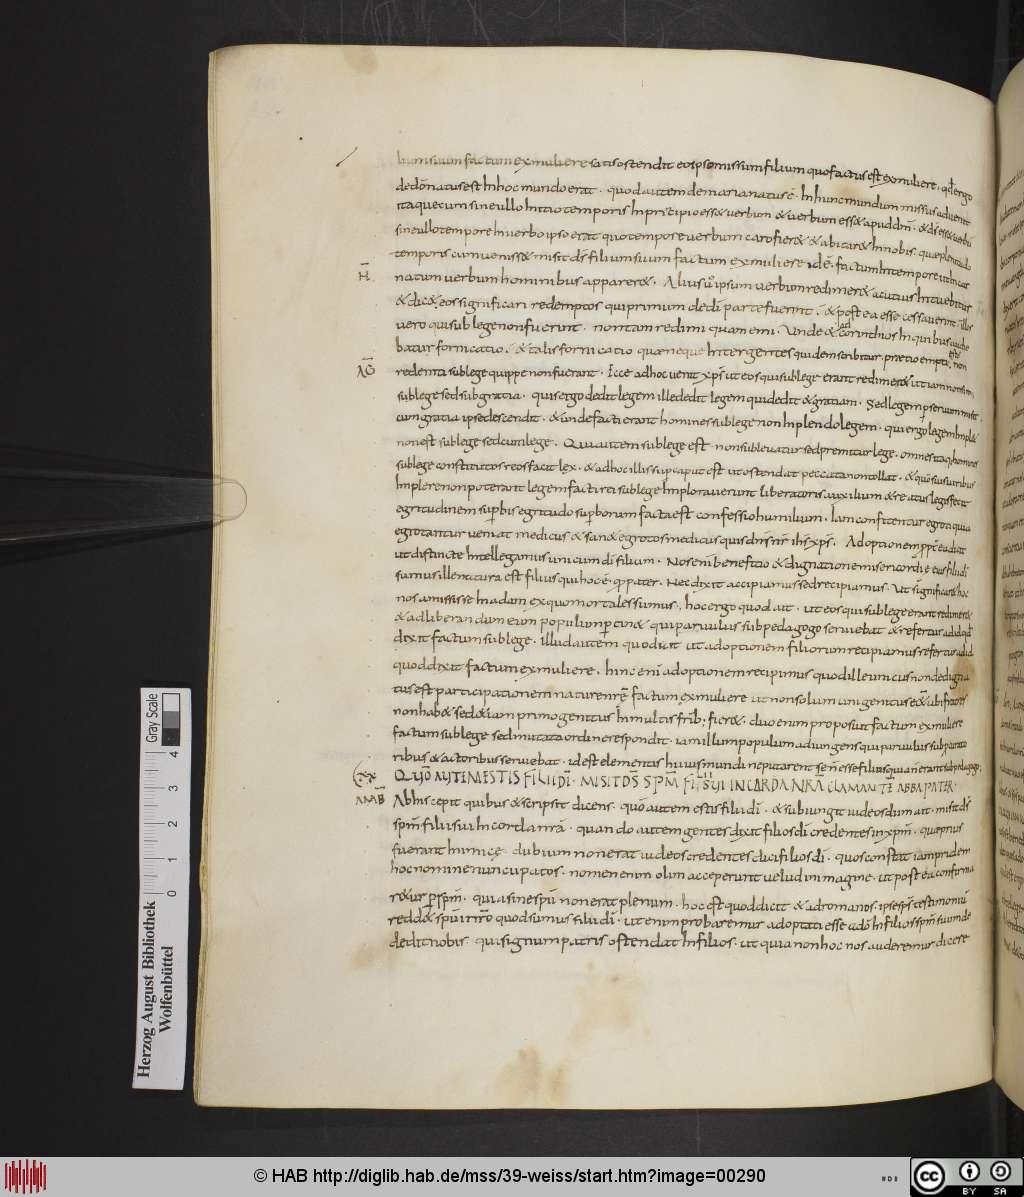 lium suum factum ex muliere satis ostendit eo ipso missum filium quo factus est ex muliere · qđ ergo
de dō natus est In hoc mundo erat · quod autem de maria natus ē · In hunc mundum missus advenit
Itaque cum sine ullo Initio temporis In principio ess& verbum & verbum ess& apud dm̄ · & ds̄ ess& verbū
sine ullo tempore In verbo ipso erat quo tempore verbum caro fier& & abitar& In nobis · quae plenitudo
temporis cum veniss& misit ds̄ filium suum factum ex muliere idē · factum In tempore ut Incar
H̄ natum verbum hominibus apparer& · Alius v̊ ipsum verbum redimer& acutius Intuebitur
& dic& eos significari redemptos qui primum de dī parte fuerint · & postea esse cessaverint illos
vero qui sub lege non fuerunt · non tam redimi quam emi · Unde & ad corinthios In quibus audie
batur fornicatio · & talis fornicatio quae neque Inter gentes quidem scribitur · praetio empti estis non
AḠ redempti sub lege quippe non fuerant · Ecce ad hoc venit xp̄s ut eos qui sub lege erant redimer& ut iam non sim
sub lege sed sub gratia · quis ergo dedit legem ille dedit legem qui dedit & gratiam · Sed legem per servum misit
cum gratia ipse descendit · & unde facti erant homines sub lege non Implendo legem · qui ergo legem Impl&
non est sub lege sed cum lege · Qui autem sub lege est non sublevatur sed premitur lege · omnes itaq; homines
sub lege constitutos reos facit lex · & ad hoc illis sup caput est ut ostendat peccata non tollat · & quō suis viribus
Implere non poterant legem facti rei sub lege Imploraverunt liberatoris auxilium & reatus legis fecit
egritudinem superbis egritudo superborum facta est confessio humilium · Iam confitentur egroti quia
egrotant ur veniat medicus & san& egrotos medicus quis dn̄s nr̄ ih̄s xp̄s · Adoptionem ppt̄ ea dixit
ut distincte Intellegamus unicum dī filium · Nos enī beneficio & dignatione misericordię eius filii dī
sumus ille natura est filius qui hoc ē · qp pater · Nec dixit accipiamus sed recipiamus · Ut significar& hoc
nos amississe In adam ex quo mortales sumus · hoc ergo quod ait · ut eos qui sub lege erant redimer&
& ad liberandum eum populum p tin& qui parvulus sub pedagogo serviebat & refertur ad id qđ
dixit factum sub lege · illud autem quod ait ut adoptionem filiorum recipiamus refertur ad id
quod dixit factum ex muliere · hinc enī adoptionem recipimus quod ille unicus non dedigna
tus est participationem naturę nrę factum ex muliere ut non solum unigenitus ess& ubi fratres
non hab& sed &iam primogenitus In multis frīb; fier& · duo enim proposuit factum ex muliere
factum sub lege sed mutato ordine respondit · iam illum populum adiungens qui parvulus sub procurato
ribus & actoribus serviebat · id est elementis huius mundi ne putarent sen̄ esse filios quia n̄ erant sub pedagogo;
XX QUŌ AUTEM ESTIS FILII DĪ · MISIT DS̄ SPM̄ FILII SUI IN CORDA NRĀ CLAMANTĒ ABBA PATER ·
AMB̄ Ab his cepit quibus & scripsit dicens · quō autem estis filii dī · & subiungit iudeos dum ait · misit ds̄
spm̄ filii sui In corda nrā · quando autem gentes dixit filios dī credentes in xpm̄ · quae prius
fuerant Inimice · dubium non erat iudeos credentes dici filios dī · quos constat iam pridem
hoc nomine nuncupatos · nomen enim olim acceperunt velud in imagine · ut postea confirma
r&ur p spm̄ · quia sine spū non erat plenum · hoc est quod dicit & ad romanos · ipse sps̄ testimoniū
redd& spū nr̄o quod sumus filii dī · ut enim probaremur adoptati esse a dō In filios spm̄ suum de
dedit nobis · qui signum patris ostendat In filios · ut quia non hoc nos auderemur dicere
Herzog August Bibliothek
Wolfenbüttel
0 1 2 3 4
Gray Scale
© HAB http://diglib.hab.de/mss/39-weiss/start.htm?image=00290
cc BY SA